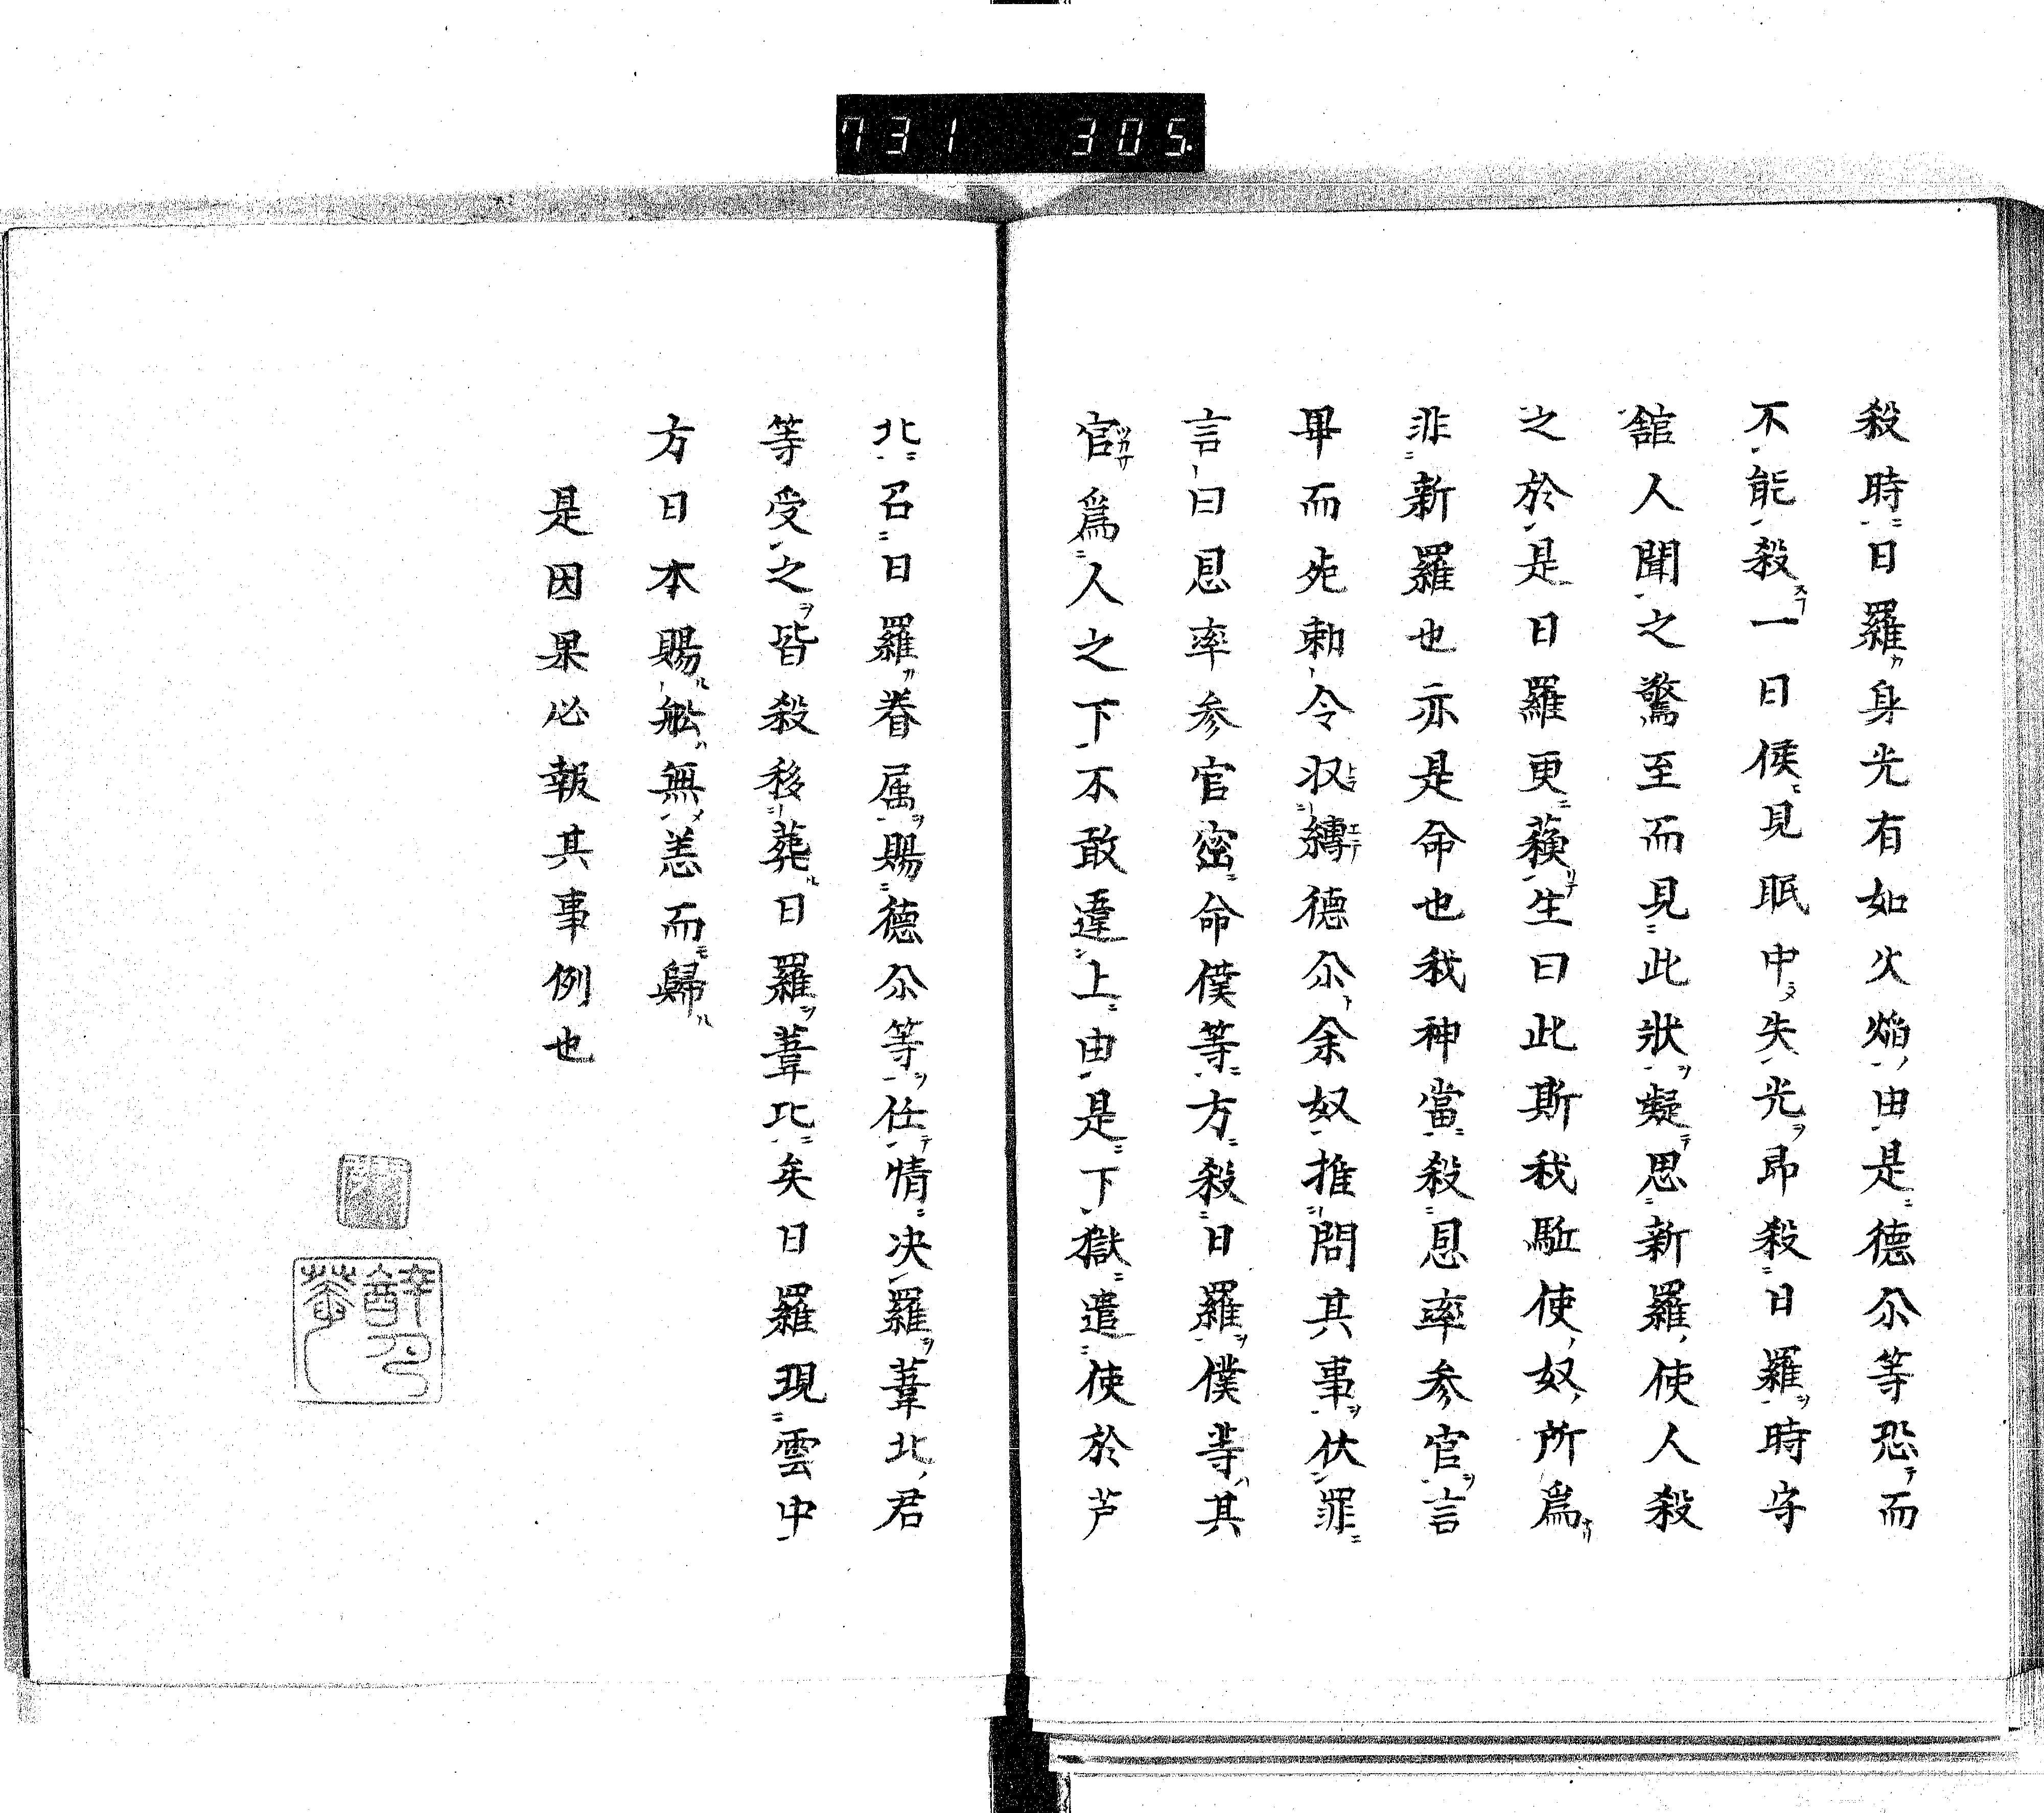 731 305.
殺時日羅身光有如火焔由是德尒等恐而
不能殺一日侯見眠中失光即殺日羅時守
舘人聞之驚至而見此狀凝思新羅使人殺
之於是日羅更蘓生曰此斯我駈使奴所爲
非新羅也亦是命也我神當殺恩率参官言
畢而死勅令収縛德尒余奴推問其事伏罪
言曰恩率参官密命僕等方殺日羅僕等其
官爲人之下不敢違上由是下獄遣使於芦
北召日羅眷属賜德尒等任情决羅葦北君
等受之皆殺移葬日羅葦北矣日羅現雲中
方日本賜舩無恙而歸
是因果必報其事例也